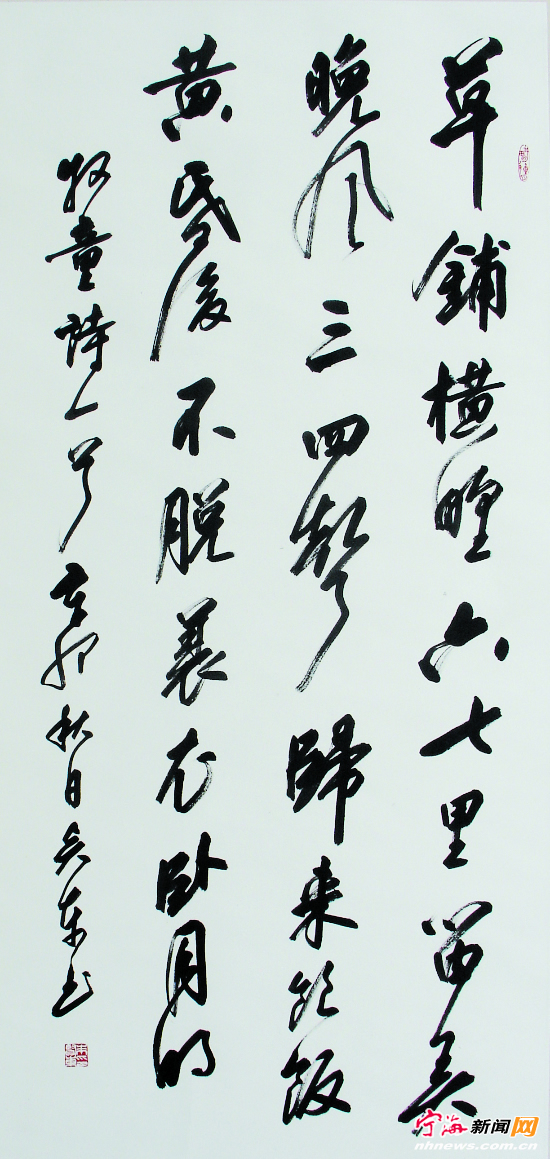 草鋪横野六七里笛弄
晚風三四聲歸來飽飯
黄昏後不脱蓑衣卧月明
牧童詩一首辛卯秋日東书
宁海新闻网
nhnews.com.cn